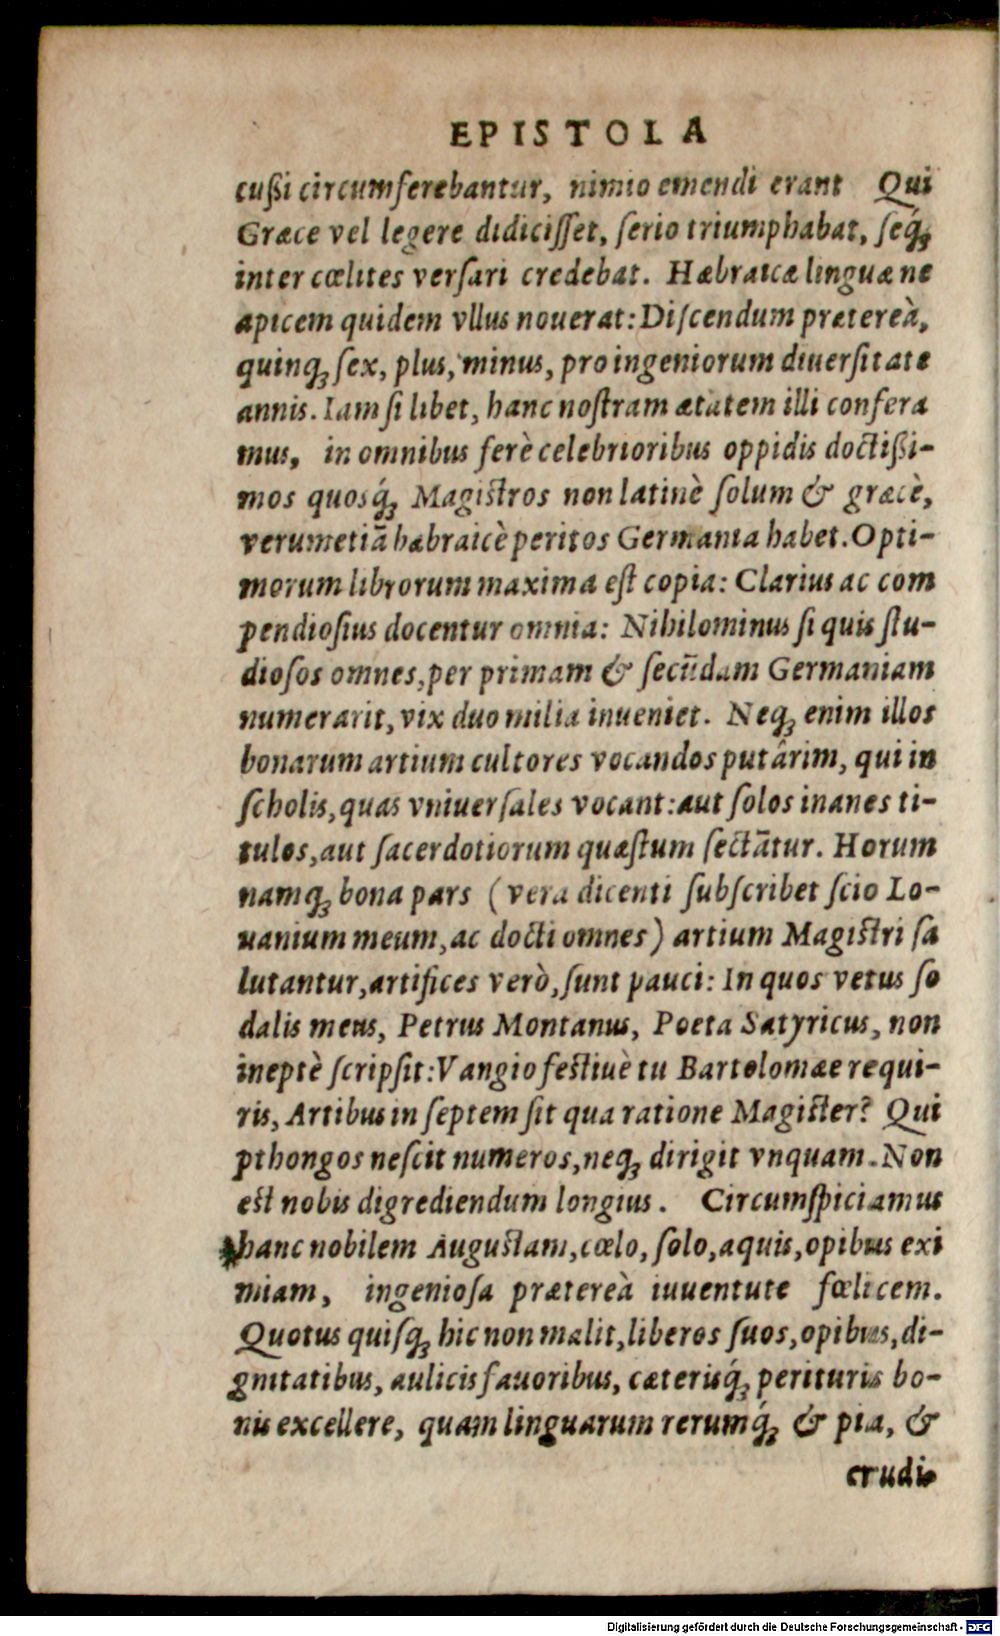 EPISTOLA
cußi circumferebantur, nimio emendi erant Qui
Græce vel legere didiciſſet, ſerio triumphabat, ſeq́ꝫ
inter cœlites verſari credebat. Hæbraicæ linguæ ne
apicem quidem vllus nouerat: Diſcendum prætereà,
quinqꝫ ſex, plus, minus, pro ingeniorum diuerſitate
annis. Iam ſi libet, hanc noſtram ætatem illi confera
mus, in omnibus ferè celebrioribus oppidis doctißi-
mos quosq́ꝫ Magiſtros non latinè ſolum & græcè,
verumetiã hæbraicè peritos Germania habet. Opti-
morum librorum maxima eſt copia: Clarius ac com
pendioſius docentur omnia: Nihilominus ſi quis ſtu-
dioſos omnes, per primam & ſecũdam Germaniam
numerarit, vix duo milia inueniet. Neqꝫ enim illos
bonarum artium cultores vocandos putârim, qui in
ſcholis, quas vniuerſales vocant: aut ſolos inanes ti-
tulos, aut ſacerdotiorum quæſtum ſectãtur. Horum
namqꝫ bona pars (vera dicenti ſubſcribet ſcio Lo-
uanium meum, ac docti omnes) artium Magiſtri ſa
lutantur, artifices verò, ſunt pauci: In quos vetus ſo
dalis meus, Petrus Montanus, Poeta Satyricus, non
ineptè ſcripſit: Vangio feſtiuè tu Bartolomæe requi-
ris, Artibus in ſeptem ſit qua ratione Magiſter? Qui
pthongos neſcit numeros, neqꝫ dirigit vnquam. Non
eſt nobis digrediendum longius. Circumſpiciamus
hanc nobilem Auguſtam, cœlo, ſolo, aquis, opibus exi
miam, ingenioſa prætereà iuuentute fœlicem.
Quotus quiſqꝫ hic non malit, liberos ſuos, opibus, di-
gnitatibus, aulicis fauoribus, cæterisq́ꝫ perituris bo-
nis excellere, quam linguarum rerumq́ꝫ & pia, &
erudi
Digitalisierung gefördert durch die Deutsche Forschungsgemeinschaft - DFG